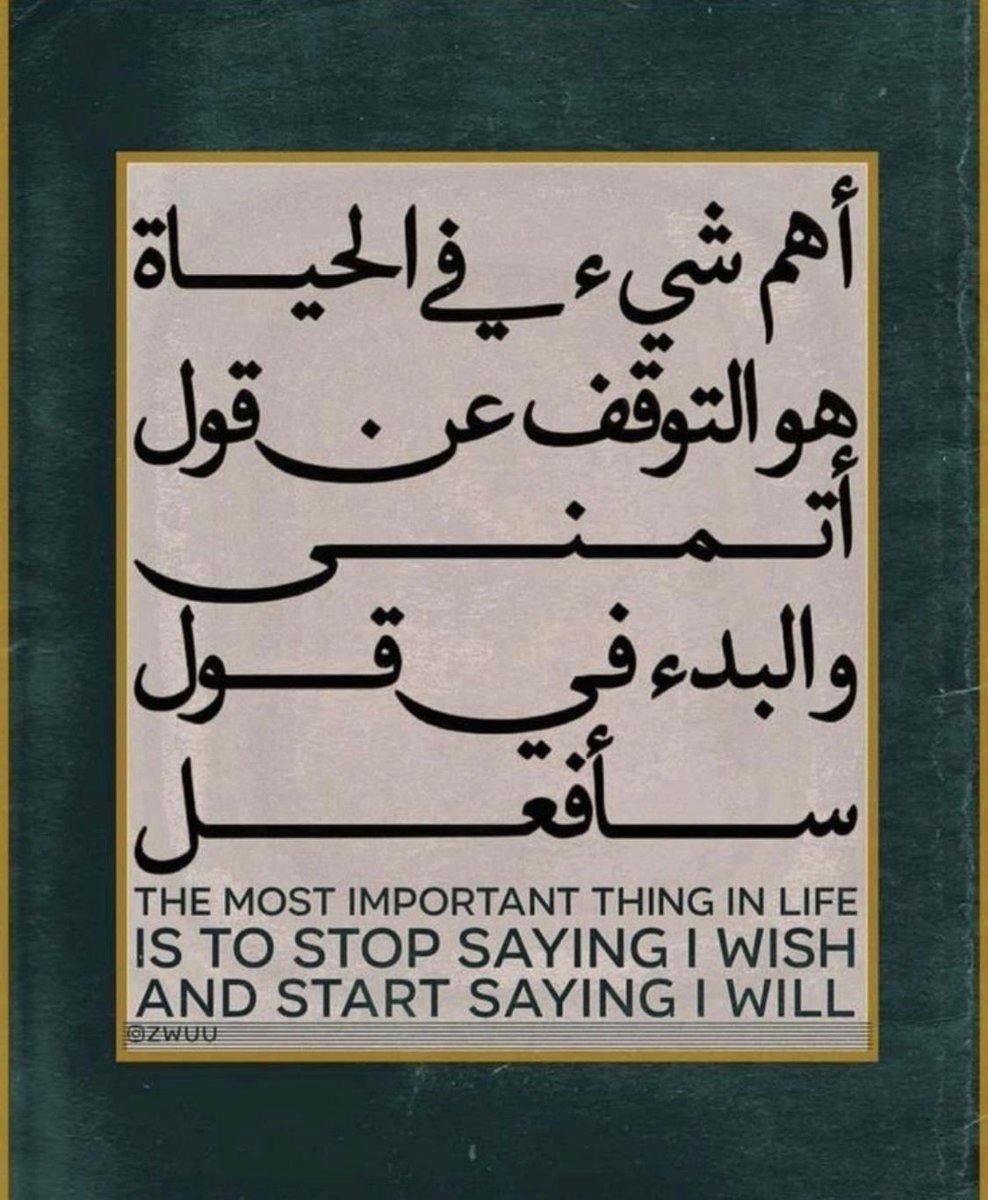 أهم شيء في الحياة
هو التوقف عن قول
أتمنى
والبدء في قول
سأفعل
THE MOST IMPORTANT THING IN LIFE
IS TO STOP SAYING I WISH
AND START SAYING I WILL
@ZWUU